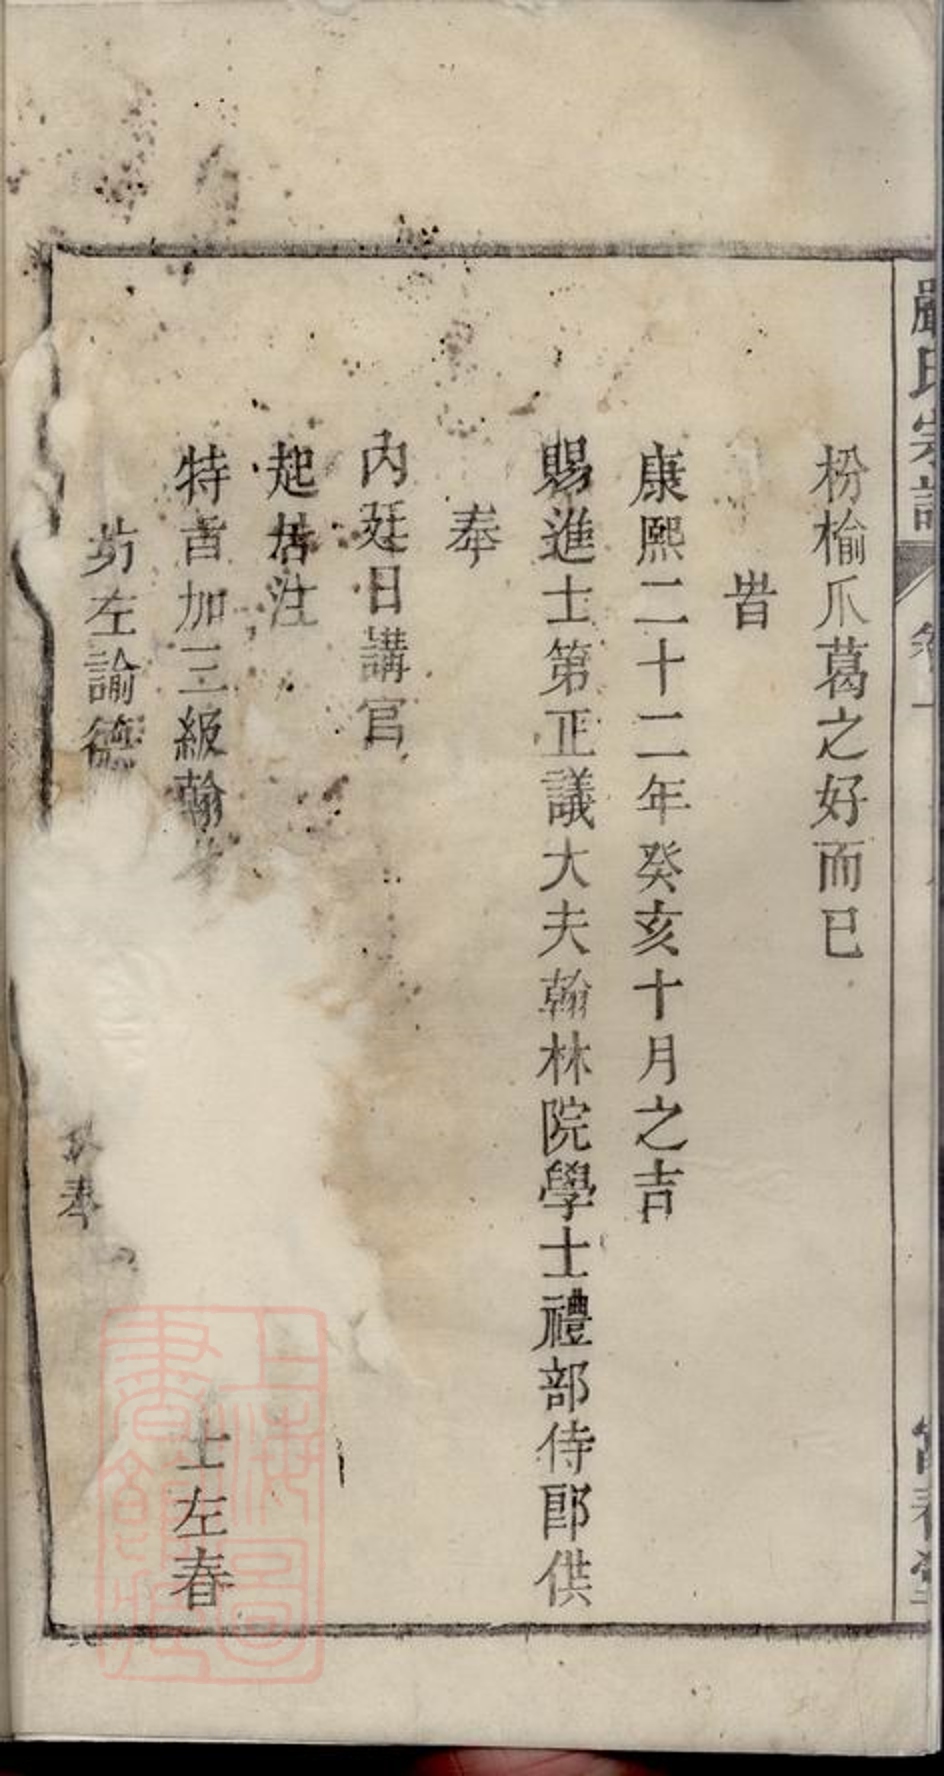 嚴氏宗譜
枌榆爪葛之好而已
昔
康熙二十二年癸亥十月之吉
賜進士第正議大夫翰林院學士禮部侍郎供
奉
內廷日講官
起居注
特旨加三級翰
士左春
坊左諭德
拜奉
上海圖書館藏